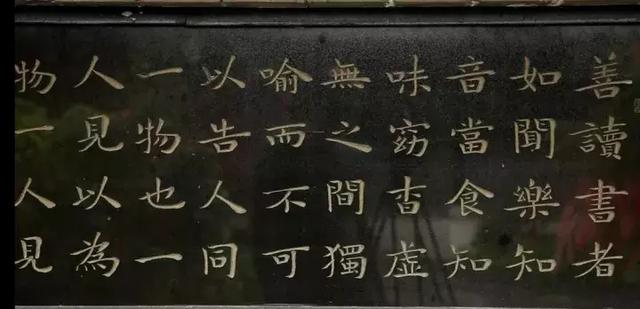 善讀書者
如聞樂知
音當食知
味窈杳虛
無之間獨
喻而不可
以告人同
一物也一
人見以為
物一人見